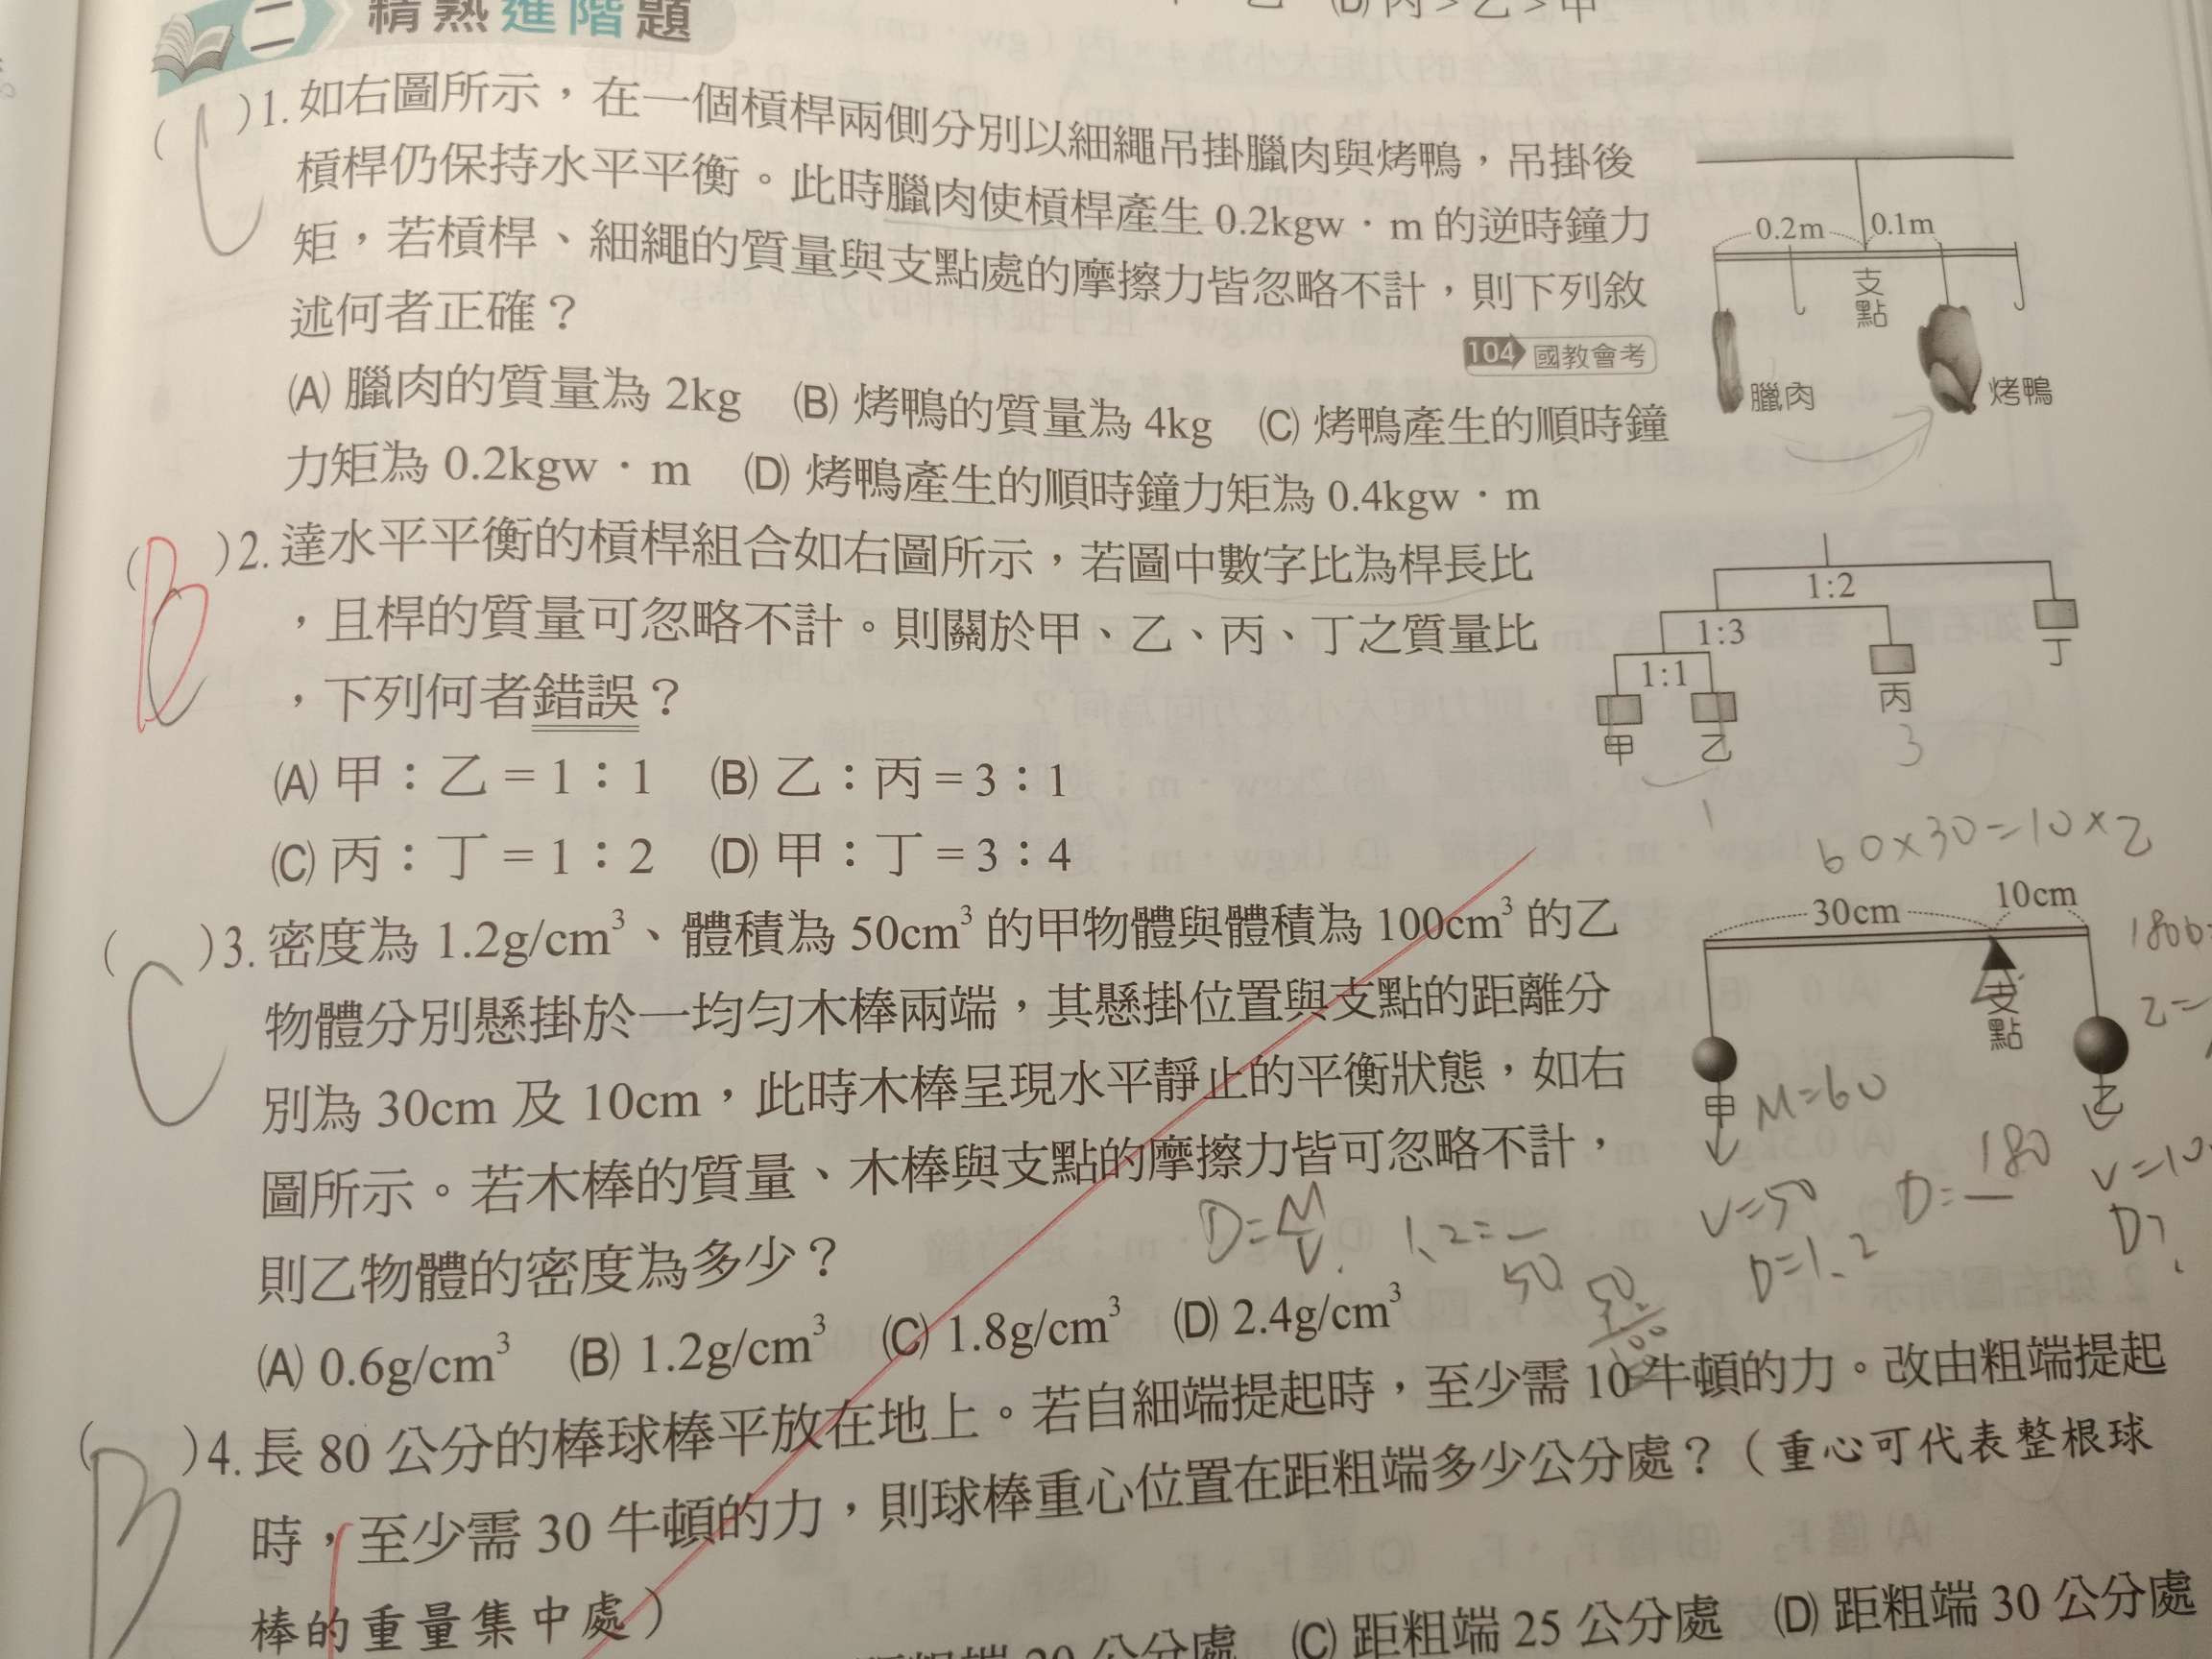 乙 (D) 丙 > 乙 > 甲
二 精熟進階題
( C )1. 如右圖所示，在一個槓桿兩側分別以細繩吊掛臘肉與烤鴨，吊掛後
槓桿仍保持水平平衡。此時臘肉使槓桿產生 0.2kgw．m 的逆時鐘力
矩，若槓桿、細繩的質量與支點處的摩擦力皆忽略不計，則下列敘
述何者正確？
104 國教會考
(A) 臘肉的質量為 2kg (B) 烤鴨的質量為 4kg (C) 烤鴨產生的順時鐘
力矩為 0.2kgw．m (D) 烤鴨產生的順時鐘力矩為 0.4kgw．m
0.2m 0.1m
支點
臘肉 烤鴨
( B )2. 達水平平衡的槓桿組合如右圖所示，若圖中數字比為桿長比
，且桿的質量可忽略不計。則關於甲、乙、丙、丁之質量比
，下列何者錯誤？
(A) 甲：乙＝1：1 (B) 乙：丙＝3：1
(C) 丙：丁＝1：2 (D) 甲：丁＝3：4
1:2
1:3 丁
1:1 丙
甲 乙 3
1
60×30=10×2
( C )3. 密度為 1.2g/cm³、體積為 50cm³ 的甲物體與體積為 100cm³ 的乙
物體分別懸掛於一均勻木棒兩端，其懸掛位置與支點的距離分
別為 30cm 及 10cm，此時木棒呈現水平靜止的平衡狀態，如右
圖所示。若木棒的質量、木棒與支點的摩擦力皆可忽略不計，
則乙物體的密度為多少？
(A) 0.6g/cm³ (B) 1.2g/cm³ (C) 1.8g/cm³ (D) 2.4g/cm³
30cm 10cm
支點
甲 乙
M=60
V=50
D=1.2
D= 180
D=M/V
1.2= 50
( B )4. 長 80 公分的棒球棒平放在地上。若自細端提起時，至少需 10 牛頓的力。改由粗端提起
時，至少需 30 牛頓的力，則球棒重心位置在距粗端多少公分處？（重心可代表整根球
棒的重量集中處）
20 公分處 (C) 距粗端 25 公分處 (D) 距粗端 30 公分處